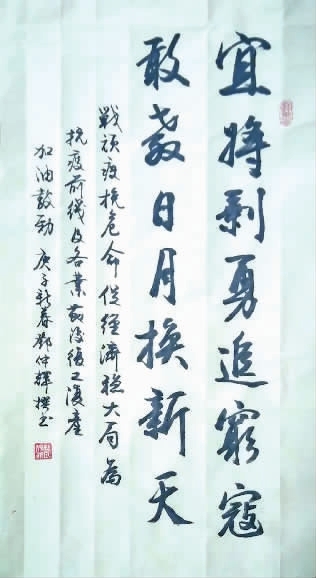 宜將剩勇追窮寇
敢教日月換新天
戰頑疫挽危命促經濟穩大局為
抗疫前綫及各業復工復產
加油鼓勁 庚子新春仲輝撰書